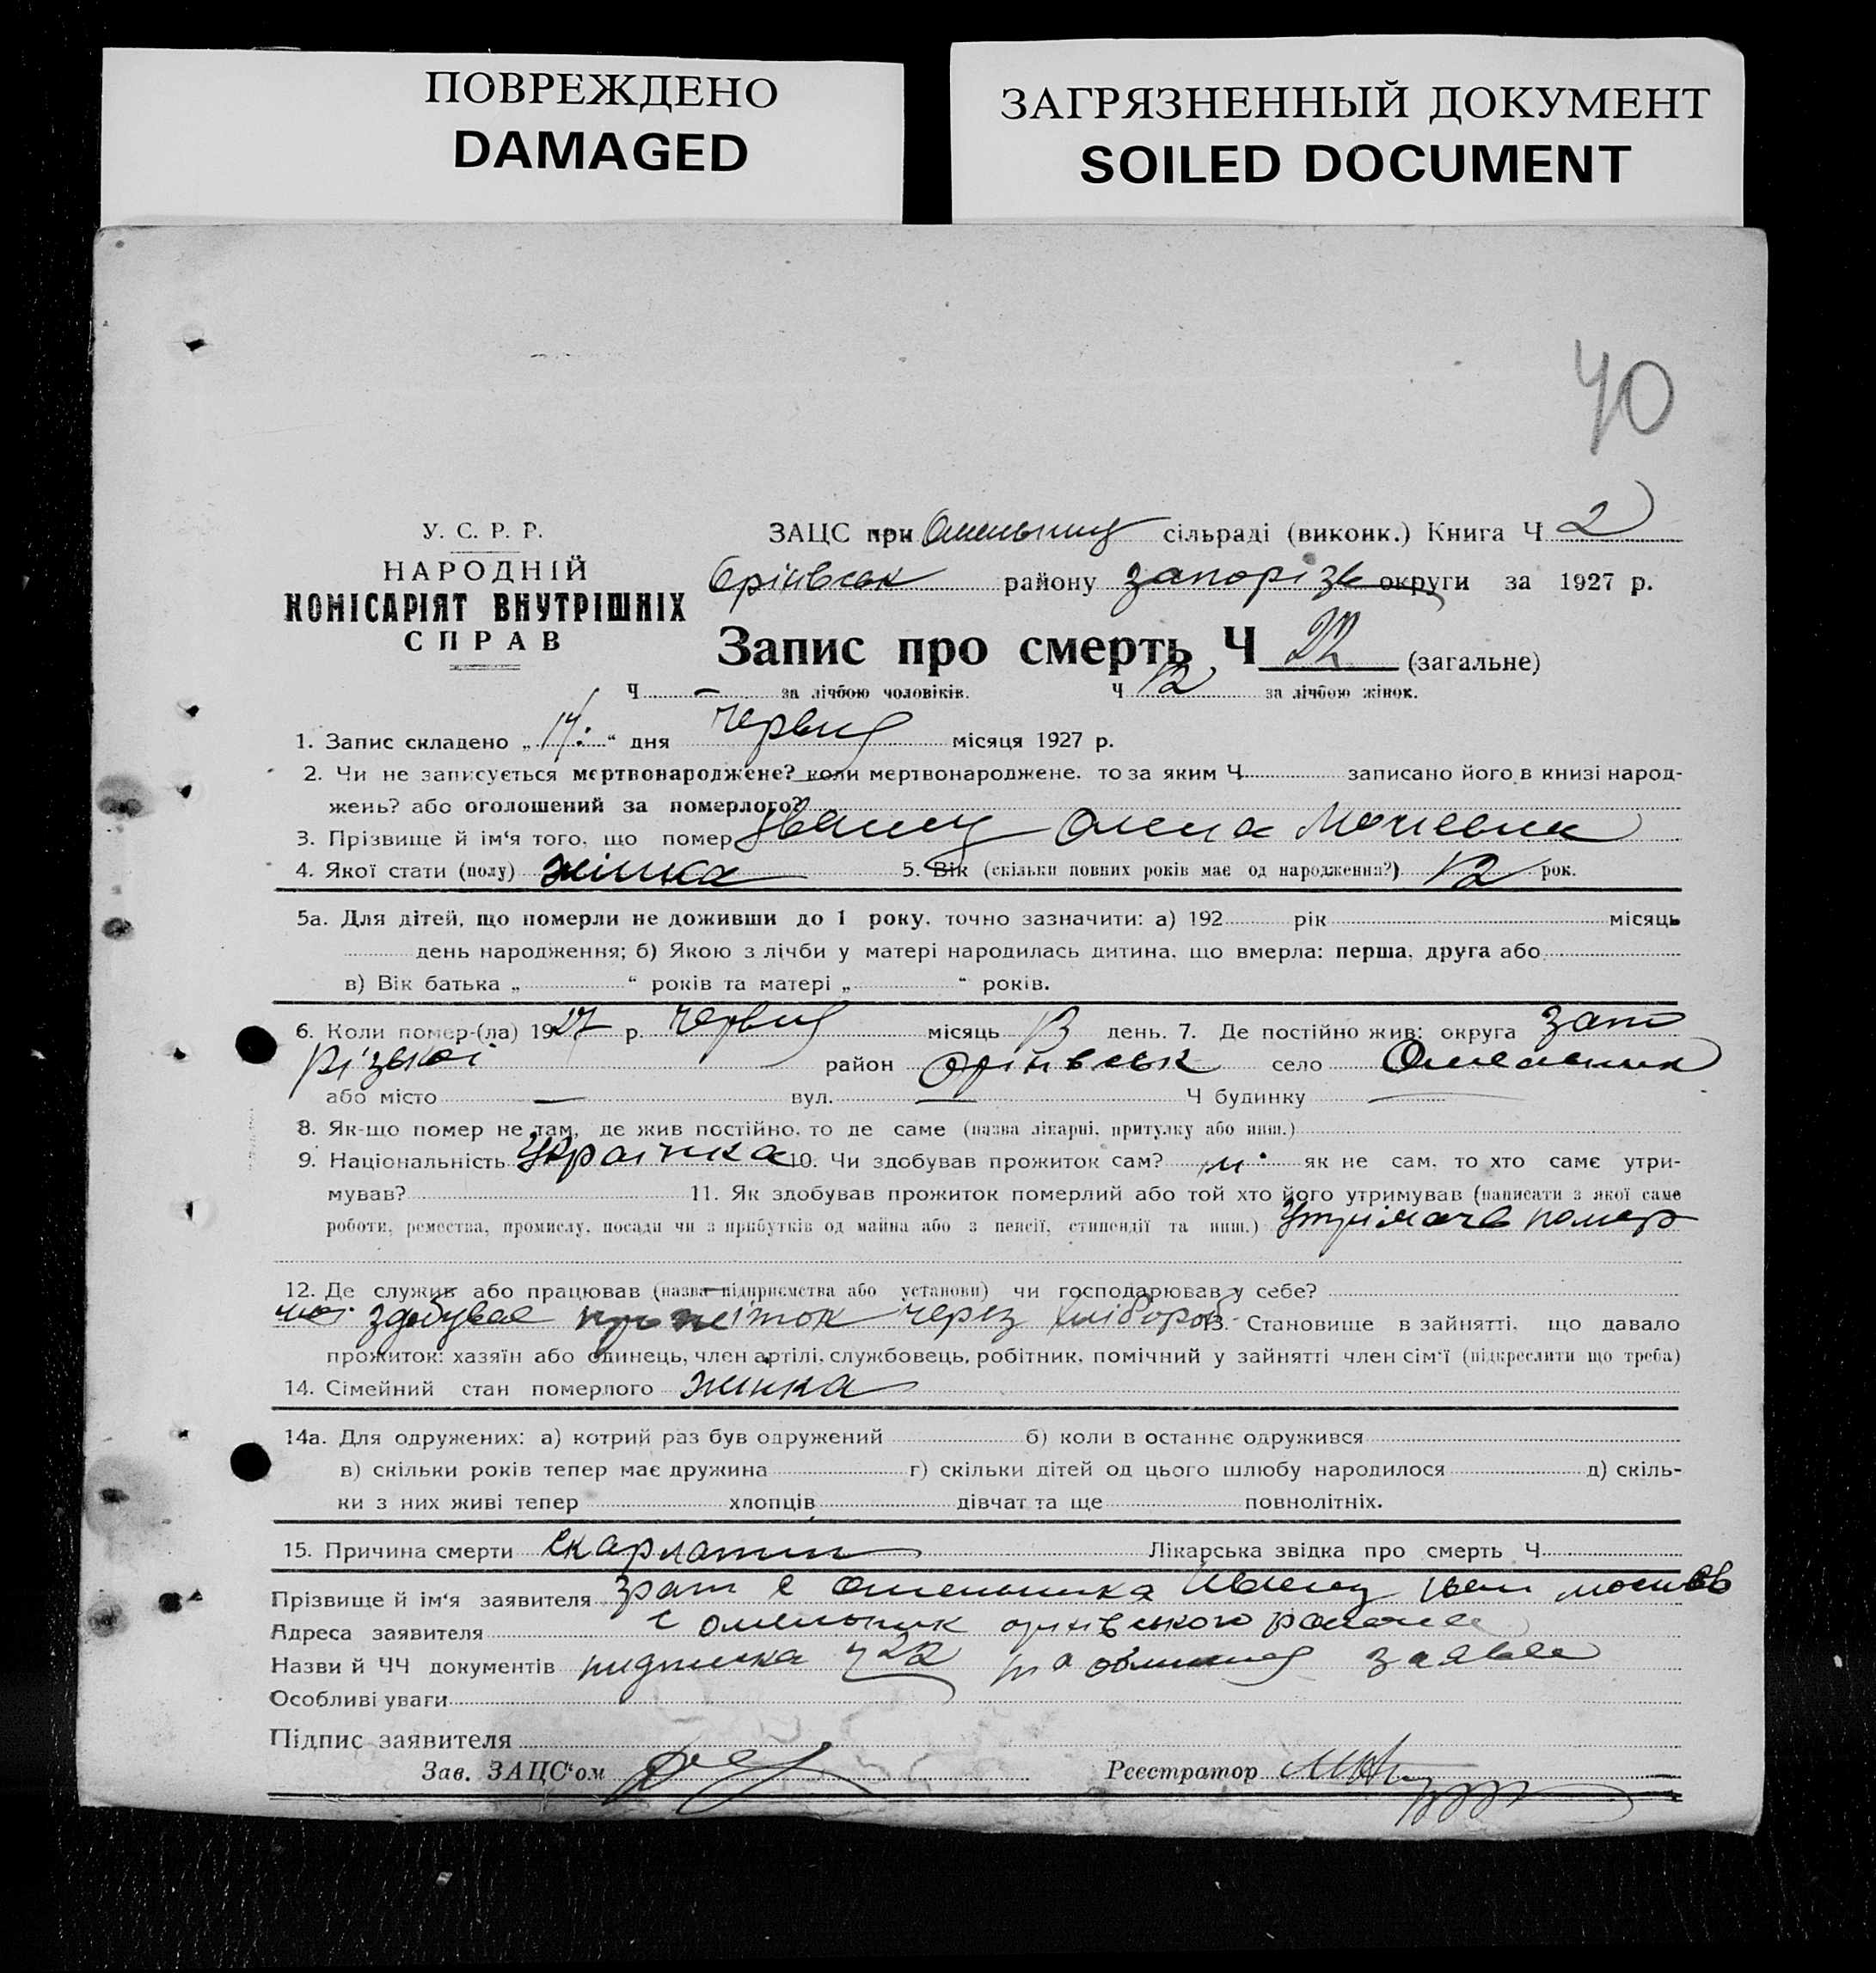 ПОВРЕЖДЕНО
DAMAGED
ЗАГРЯЗНЕННЫЙ ДОКУМЕНТ
SOILED DOCUMENT
40
У. С. Р. Р.
НАРОДНІЙ
КОМІСАРІЯТ ВНУТРІШНІХ
СПРАВ
ЗАЦС при сільраді (виконк.) Книга Ч 2
Орінівськ району запорізь округи за 1927 р.
Запис про смерть Ч 22 (загальне)
Ч - за лічбою чоловіків. Ч 12 за лічбою жінок.
1. Запис складено „14“ дня червня місяця 1927 р.
2. Чи не записується мертвонароджене? коли мертвонароджене, то за яким Ч записано його в книзі народ-
жень? або оголошений за померлого?
3. Прізвище й ім'я того, що помер Олена
4. Якої стати (полу) жінка 5. Вік (скільки повних років має од народження?) 12 рок.
5а. Для дітей, що померли не доживши до 1 року, точно зазначити: а) 192 рік місяць
день народження; б) Якою з лічби у матері народилась дитина, що вмерла: перша, друга або
в) Вік батька „ “ років та матері „ “ років.
6. Коли помер-(ла) 1927 р. червня місяць 13 день. 7. Де постійно жив: округа Запо
різької район орінівськ село Омельник
або місто — вул. — Ч будинку —
8. Як-що помер не там, де жив постійно, то де саме (назва лікарні, притулку або инш.)
9. Національність Українка 10. Чи здобував прожиток сам? ні як не сам, то хто саме утри-
мував? 11. Як здобував прожиток померлий або той хто його утримував (написати з якої саме
роботи, ремества, промислу, посади чи з прибутків од майна або з пенсії, стипендії та инш.) утрімачь помер
12. Де служив або працював (назва підприємства або установи) чи господарював у себе?
шої здобував прожіток через хлібороб 13. Становище в зайнятті, що давало
прожиток: хазяїн або одинець, член артілі, службовець, робітник, помічний у зайнятті член сім'ї (підкреслити що треба)
14. Сімейний стан померлого жінка
14а. Для одружених: а) котрий раз був одружений б) коли в останнє одружився
в) скільки років тепер має дружина г) скільки дітей од цього шлюбу народилося д) скіль-
ки з них живі тепер хлопців дівчат та ще повнолітніх.
15. Причина смерти скарлатин Лікарська звідка про смерть Ч
Прізвище й ім'я заявителя с Омельника
Адреса заявителя с омельник орінівського района
Назви й ЧЧ документів підписка ч 22 та заява
Особливі уваги
Підпис заявителя
Зав. ЗАЦС'ом Реєстратор